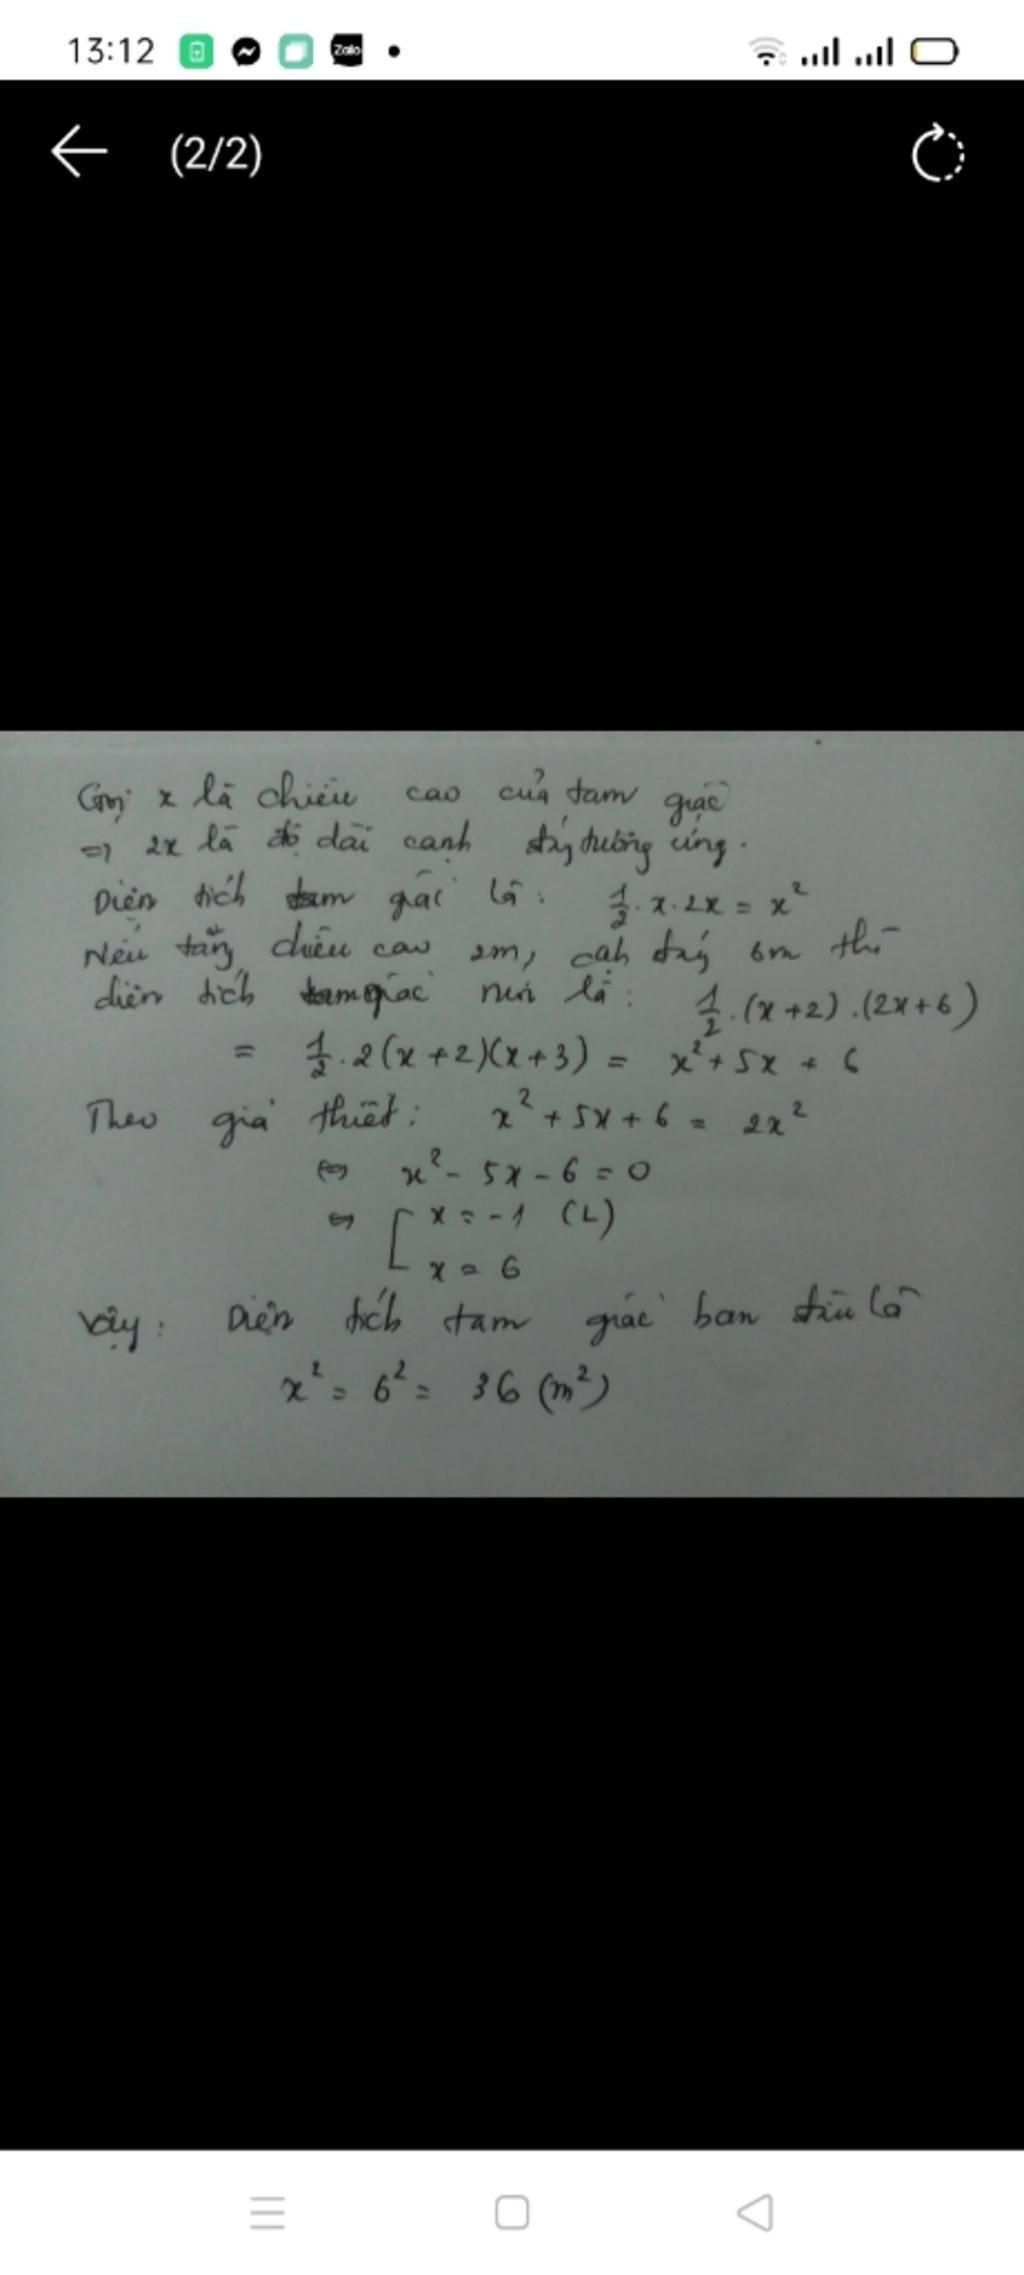 13:12 Zalo
(2/2)
Gọi x là chiều cao của tam giác
=> 2x là độ dài cạnh đáy tương ứng.
Diện tích tam giác là: 1/2 . x . 2x = x²
Nếu tăng chiều cao 2m, cạh đáy 6m thì
diện tích tam giác mới là: 1/2 . (x+2) . (2x+6)
= 1/2 . 2(x+2)(x+3) = x² + 5x + 6
Theo giả thiết: x² + 5x + 6 = 2x²
⇔ x² - 5x - 6 = 0
⇔ [ x = -1 (L)
x = 6
Vậy: Diện tích tam giác ban đầu là
x² = 6² = 36 (m²)